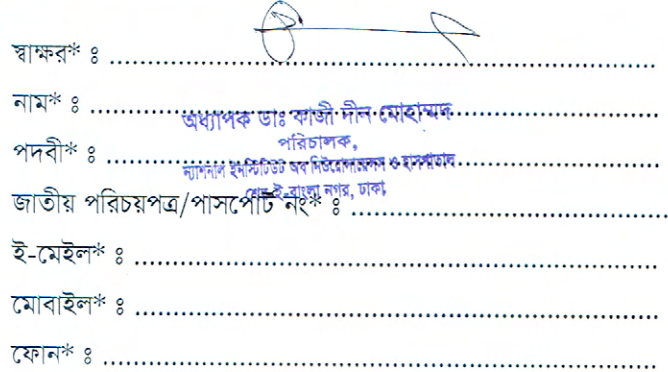 স্বাক্ষর* ঃ ........................................................
নাম* ঃ ........................................................
অধ্যাপক ডাঃ কাজী দীন মোহাম্মদ
পরিচালক,
পদবী* ঃ ........................................................
ন্যাশনাল ইনস্টিটিউট অব নিউরোসায়েন্স ও হাসপাতাল
শের-ই-বাংলা নগর, ঢাকা
জাতীয় পরিচয়পত্র/পাসপোর্ট নং* ঃ ........................................................
ই-মেইল* ঃ ........................................................
মোবাইল* ঃ ........................................................
ফোন* ঃ ........................................................